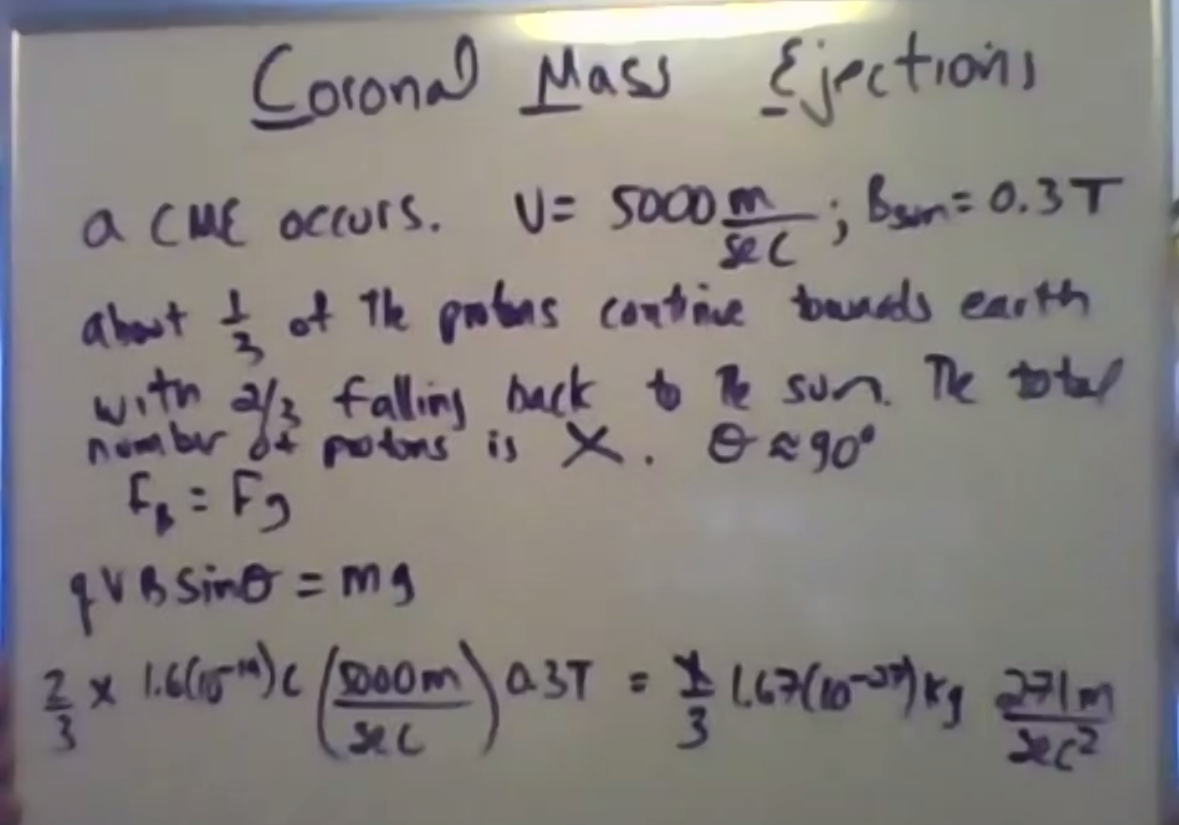 Coronal Mass Ejections
a CME occurs. V = 5000 m/sec ; Bsun = 0.3 T
about 1/3 of the protons continue towards earth
with 2/3 falling back to the sun. The total
number of protons is X. θ ≈ 90°
FB = Fg
qVB sinθ = mg
2/3 x 1.6(10⁻¹⁹)C (5000m/sec) 0.3T = x/3 1.67(10⁻²⁷)kg 271m/sec²